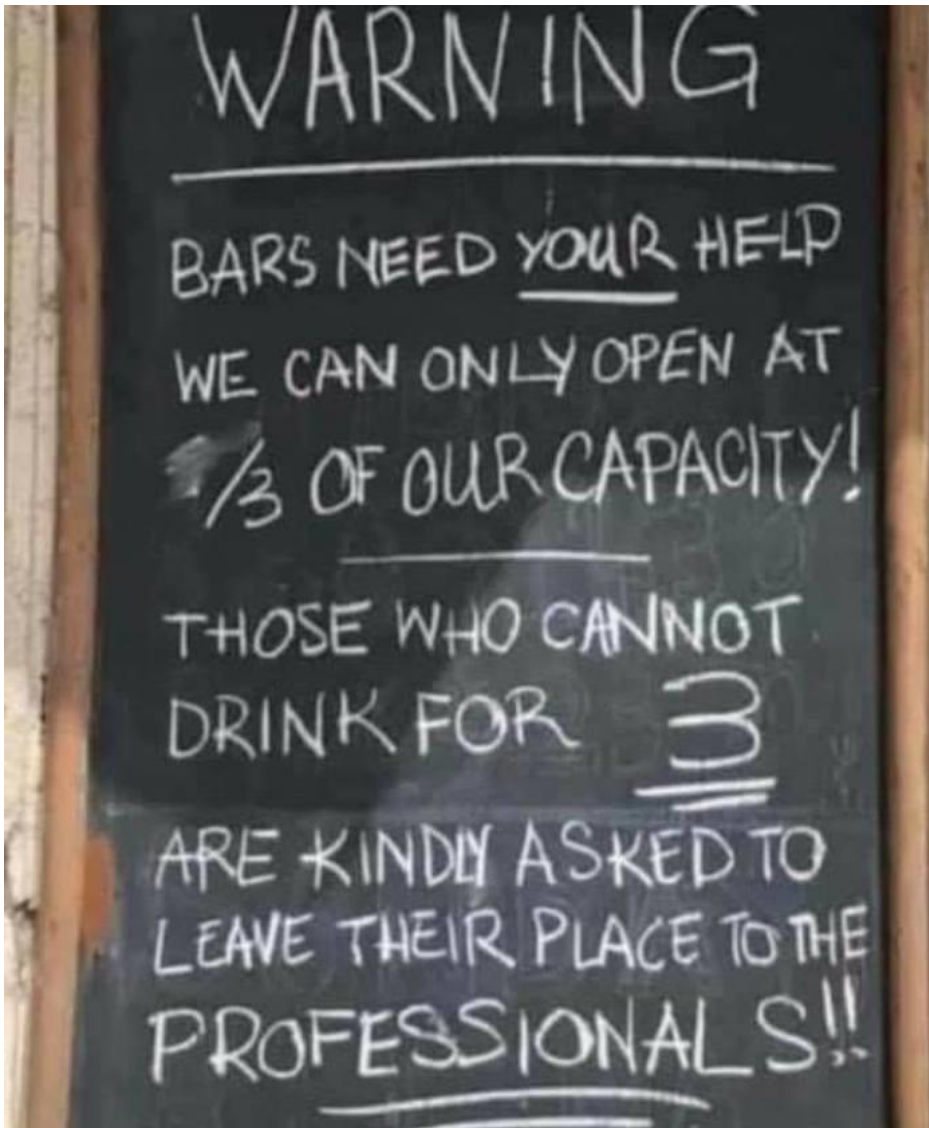 WARNING
BARS NEED YOUR HELP
WE CAN ONLY OPEN AT
/3 OF OUR CAPACITY!
THOSE WHO CANNOT
DRINK FOR 3
ARE KINDLY ASKED TO
LEAVE THEIR PLACE TO THE
PROFESSIONALS!!